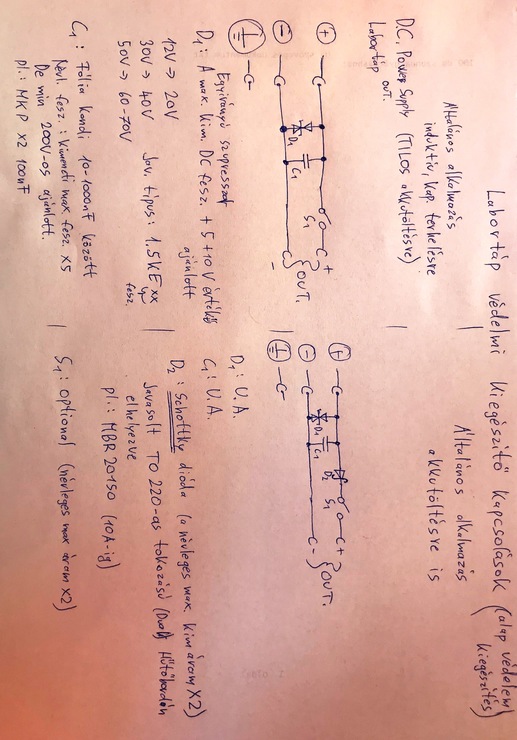 Labortáp védelmi kiegészítő kapcsolások (alap védelem kiegészítés)
Általános alkalmazás
induktív, kap. terhelésre
D.C. Power Supply (TILOS akkutöltésre)
Labortáp out.
+
-
S1
D1
C1
+
-
OUT.
D1: Egyirányú szupresszor
A max. kim. DC fesz. + 5÷10V értékű
ajánlott
12V → 20V
30V → 40V
50V → 60-70V
Jav. típus: 1.5KE xx
fesz.
C1: Fólia kondi 10-1000nF között
Névl. fesz.: kimeneti max fesz. x5
De min 200V-os ajánlott.
pl.: MKP X2 100nF
Általános alkalmazás
akkutöltésre is
+
-
D1
C1
D2
S1
+
-
OUT.
D1: U.A.
C1: U.A.
D2: Schottky dióda (a névleges max. kim áram X2)
Javasolt TO 220-as tokozású (Dual) Hűtőbordán
elhelyezve
pl.: MBR 20150 (10A-ig)
S1: optional (névleges max áram X2)